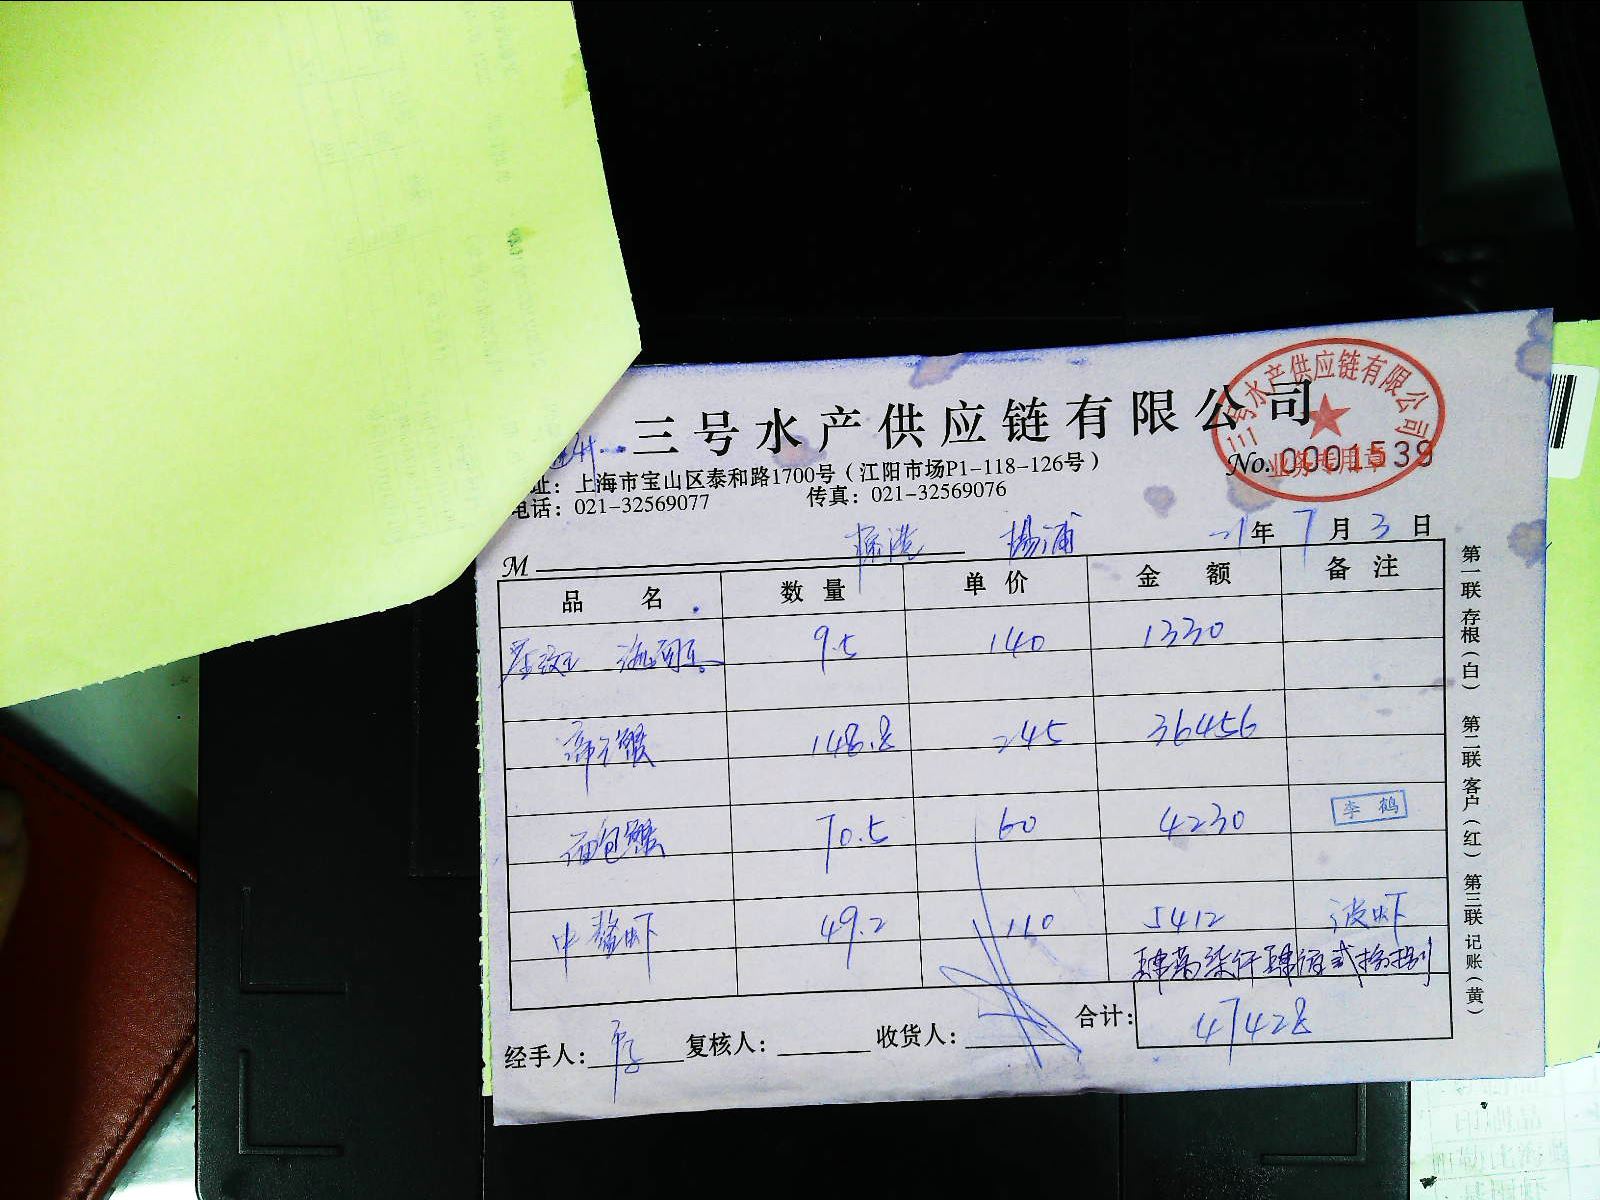 三号水产供应链有限公司
三号水产供应链有限公司
业务专用章
No. 0001539
址：上海市宝山区泰和路1700号（江阳市场P1-118-126号）
电话：021-32569077 传真：021-32569076
M 杨浦 21年7月3日
品名 数量 单价 金额 备注
9.5 140 1330
帝王蟹 148.8 245 36456
面包蟹 70.5 60 4230
李鹤
中鳌虾 49.2 110 5412 波虾
肆萬柒仟肆佰弍拾捌
合计：47428
经手人：李 复核人： 收货人：
第一联 存根（白） 第二联 客户（红） 第三联 记账（黄）